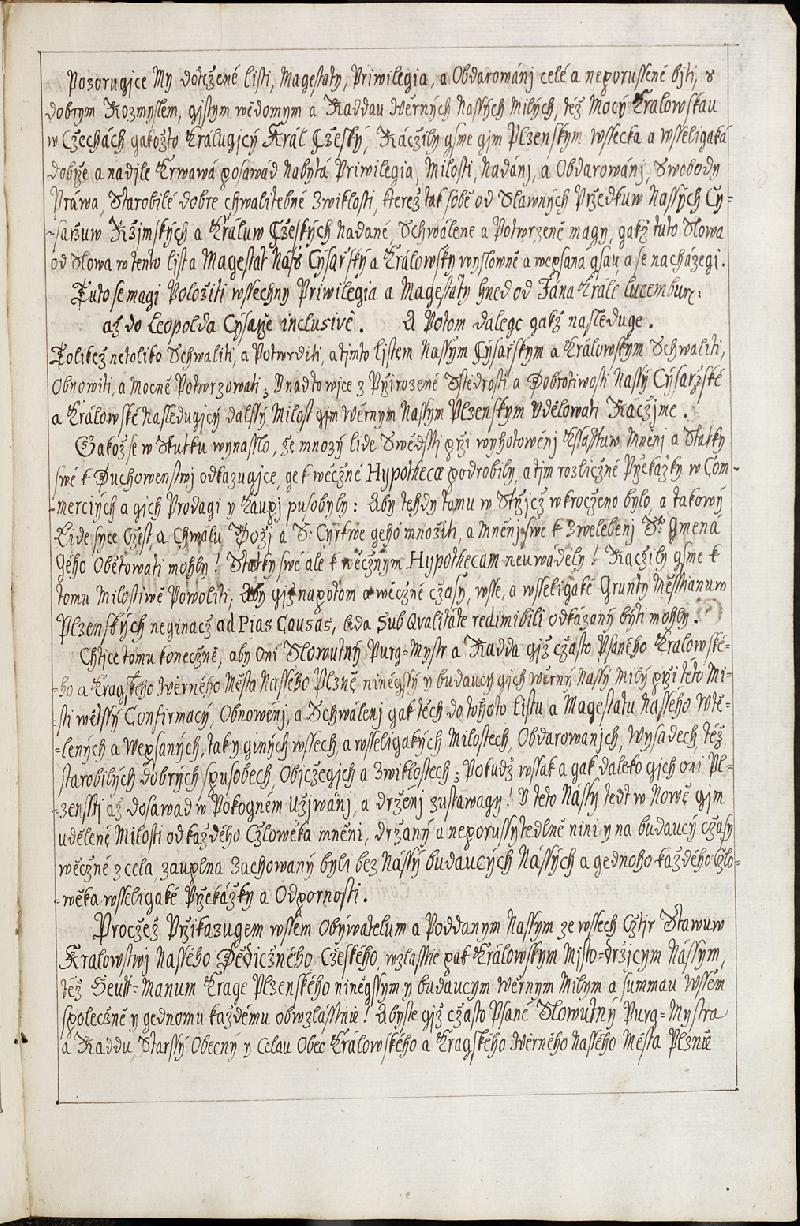 Pozorugjce My dotčzené listi, Magestaty, Priwilegia, a Obdarowánj celé a neporussené býti, s
dobrým Rozmyslem, gistym wědomym a Raddau Wěrných Nassých Milých, též Mocý Kralowskau
w Czechách gakožto Kralugjcý Král Cžeský, Ráczily gsme gim Plzenským wssecka a wsseligaká
dobrže a nadile Krwawá posawad Nabytá Priwilegia, Milosti, Nadánj, a Obdarowánj, Swobody
Práwa, Starobilé dobre chwalitebné Zwiklosti, kterež tak sobě od Slawných Pržedkuw Nassých Cy-
-saržuw Ržimských a Králuw Cžeských Nadané, Schwálené a Potwrzené magy, gakž tuto Slowa
od Slowa w tento list a Magestat Náss Cýsaržský a Králowský wyslowně a wepsana gsau a se nacházegi.
Tuto se magi Položiti wssechny Priwilegia a Magestaty hned od Jána Krále lucemburg:
až do Leopolda Cysarže inclusivè. A Potom dalege gakž nasleduge.
Tolikéž netoliko Schwaliti, a Potwrditi, a tjmto listem Nassým Cýsaržským a Králowským Schwaliti,
Obnowiti, a mocně Potwrzowati; Nnadto wjce z Pržirozené Sstědrosti a Dobrotiwosti Nassý Cýsaržské
a Králowské Nasledugjcý dalssý Milost gim Wěrnym Nassym Plzenskym Vdělowati Raczjme.
Gakož se w Skutku wynasslo, že mnozý lide Swědssti pži wyhotowenj Kssaftuw Mněni a Statky
swé k Duchowenstwj odkazugjce, ge k wěczné Hypothecæ podrobily, a tjm rozličzné Pržekažky w Com-
-merciých a gich Prodagi y Kaupj pusobyly: Aby tehdy tomu w Stržjcž wkroczeno bylo, a takowý
Lide syce Cžest a Chwálu Božj a S: Cyrkwe geho množiti, a Mněnj swé k Zwelebenj S: Gmena
geho Obětowati mohly! Statky swé ale k wěcžnym Hypothecam neuwaděly! Raczily gsme k
tomu Milostiwě Powoliti, Aby giž napotom a wěczné cžasy, wsse, a wsseligaké Grunty Měsstianuw
Plzenských neginacž ad Pias Causas, leda Sub Qvalitate redimibili odkázaný býti mohly.
Chtice tomu konecžně, aby Oni Slowutný Purg-Mystr a Radda giž cžásto Psaného Kralowské-
-ho a Kragského Wěrného Města Nasseho Plzně ninégssý y budaucý gých wěrný Nassý Milý pži této Mi-
-sti wětssý Confirmacý, Obnowenj, a Schwálenj gak těch do tohoto Listu a Magestatu Nasseho Wtě-
-lených a Wepsaných, tak y giných wssech a wsseligakých Milostech, Obdarowanjch, Wysadech, též
starobilých dobrých spusobech, Obiczegjch a Zwiklostech; Pokudž wssak a gak daleko gich oni Pl-
-zenssti až dosáwad w Pokogném užjwánj, a drženj zustáwagy! V této Nassý tedt w Nowě gim
udělené Milosti od každého Cžlowěka mněni, držany a neporussytedlně nini y na budaucý cžasy
wěcžné z cela, zauplna Zachowaný byli bez Nassý budaucých Nássých a gednoho každého Cžlo-
-wěka wsseligaké Pržekážky a Odpornosti.
Procžež Pržikazugem wssem Obywatelum a Poddanym Nassym ze wssech Cžtyr Stawuw
Kralowstwj Nasseho Dědicžného Cžeského, wzlasstie pak Králowskym Misto-držicým Nassým,
též Heut-Manum Krage Plzenského ninégssym y budaucym Wěrnym Milym a summau Wssem
společžně y gednomu každému obwzlásstně! Abyste giž cžásto Psané Slowutný Purg-Mystra
a Raddu, Starssý Obecny y Celau Obec Králowského a Kragského Wěrného Nassého Města Plzně